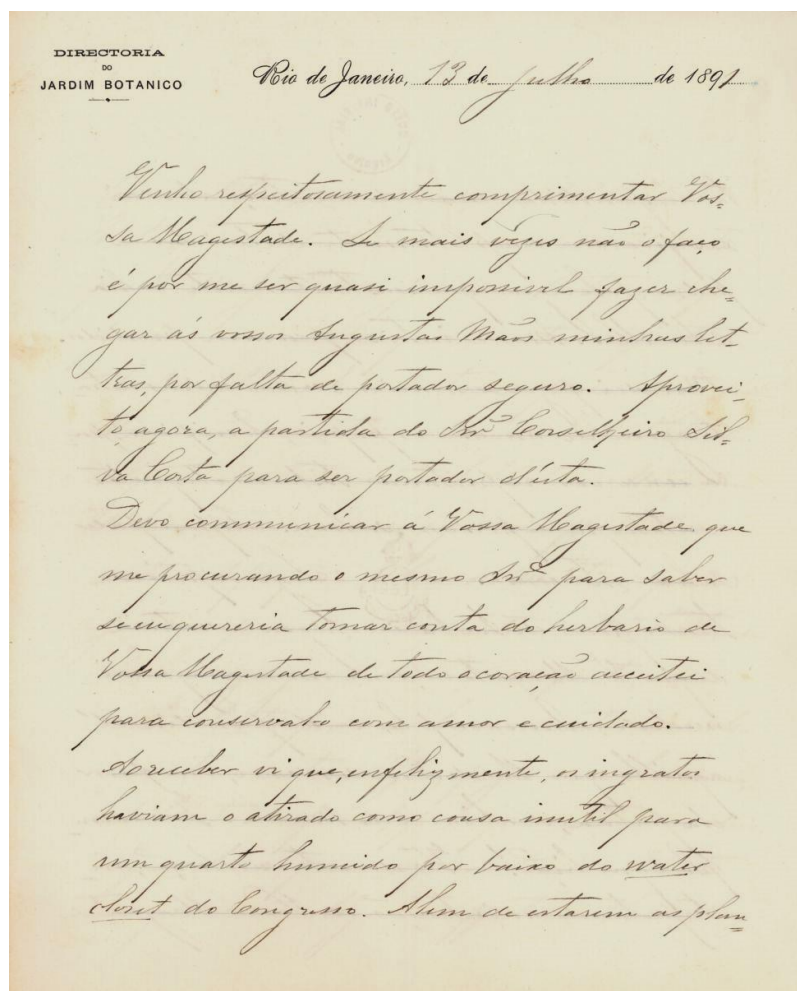 DIRECTORIA
DO
JARDIM BOTANICO
Rio de Janeiro, 13 de Julho de 1891
Venho respeitosamente comprimentar Vos=
sa Magestade. Se mais vezes não o faço
é por me ser quasi impossivel fazer che=
gar ás vossas Augustas Mãos minhas let=
tras, por falta de portador seguro. Aprovei=
to agora, a partida do Snr Conselheiro Sil=
va Costa para ser portador d'ésta.
Devo communicar á Vossa Magestade que
me procurando o mesmo Snr para saber
se eu quereria tomar conta do herbario de
Vossa Magestade de todo o coração acceitei
para conserval-o com amor e cuidado.
Ao receber vi que, infelizmente, os ingratos
haviam o atirado como cousa inutil para
um quarto humido por baixo do water
closet do Congresso. Alem de estarem as plan=